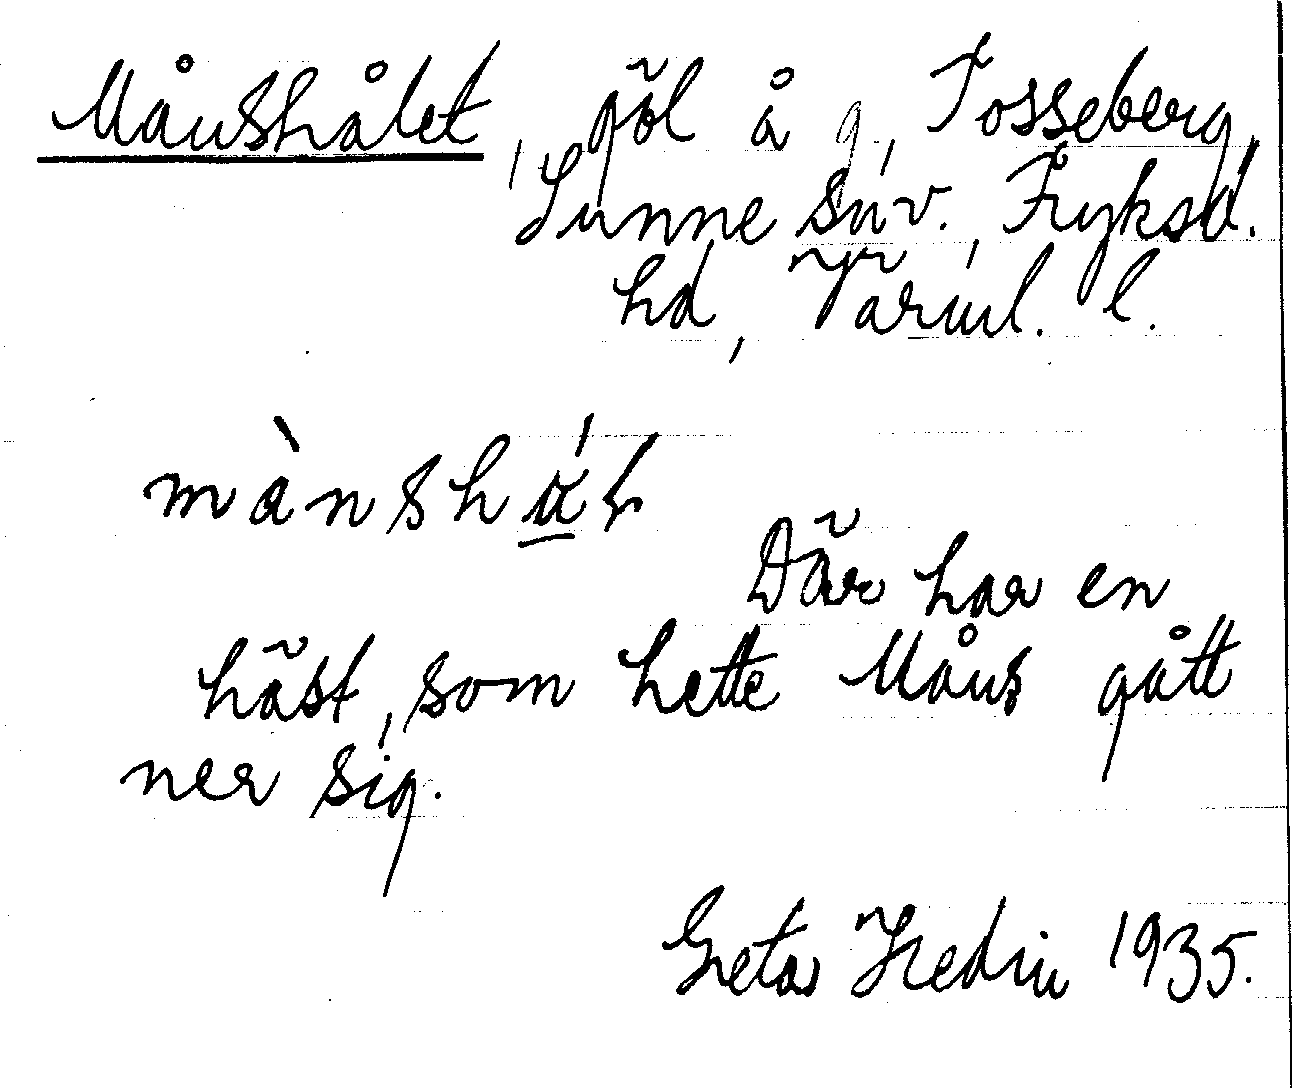 Månshålet, göl å g, Tosseberg,
Sunne snv. Fryksd.
hd, Värml. l.
mànshá
Där har en
häst, som hette Måns gått
ner sig.
Greta Hedin 1935.